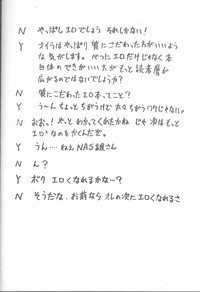 N やっぱしエロでしょう それしかない!
Y オイラはやっぱり質にこだわった方がいいよう
な気がします。べつにエロだけじゃなく本
自体のできがいい方がもっと読者層が
広がるのではないでしょうか?
N 質にこだわったエロ本ってこと?
Y う〜んちょっとちがうけど おおうちがうかじゃない。
N おおっ!やっとわかってくれたかね じゃ次はもっと
エロいなのをかくんだぞ。
Y うん……ねえNAS雄さん
N ん?
Y ボク エロくなれるかな…?
N そうだな、お前なら オレの次にエロくなれるさ